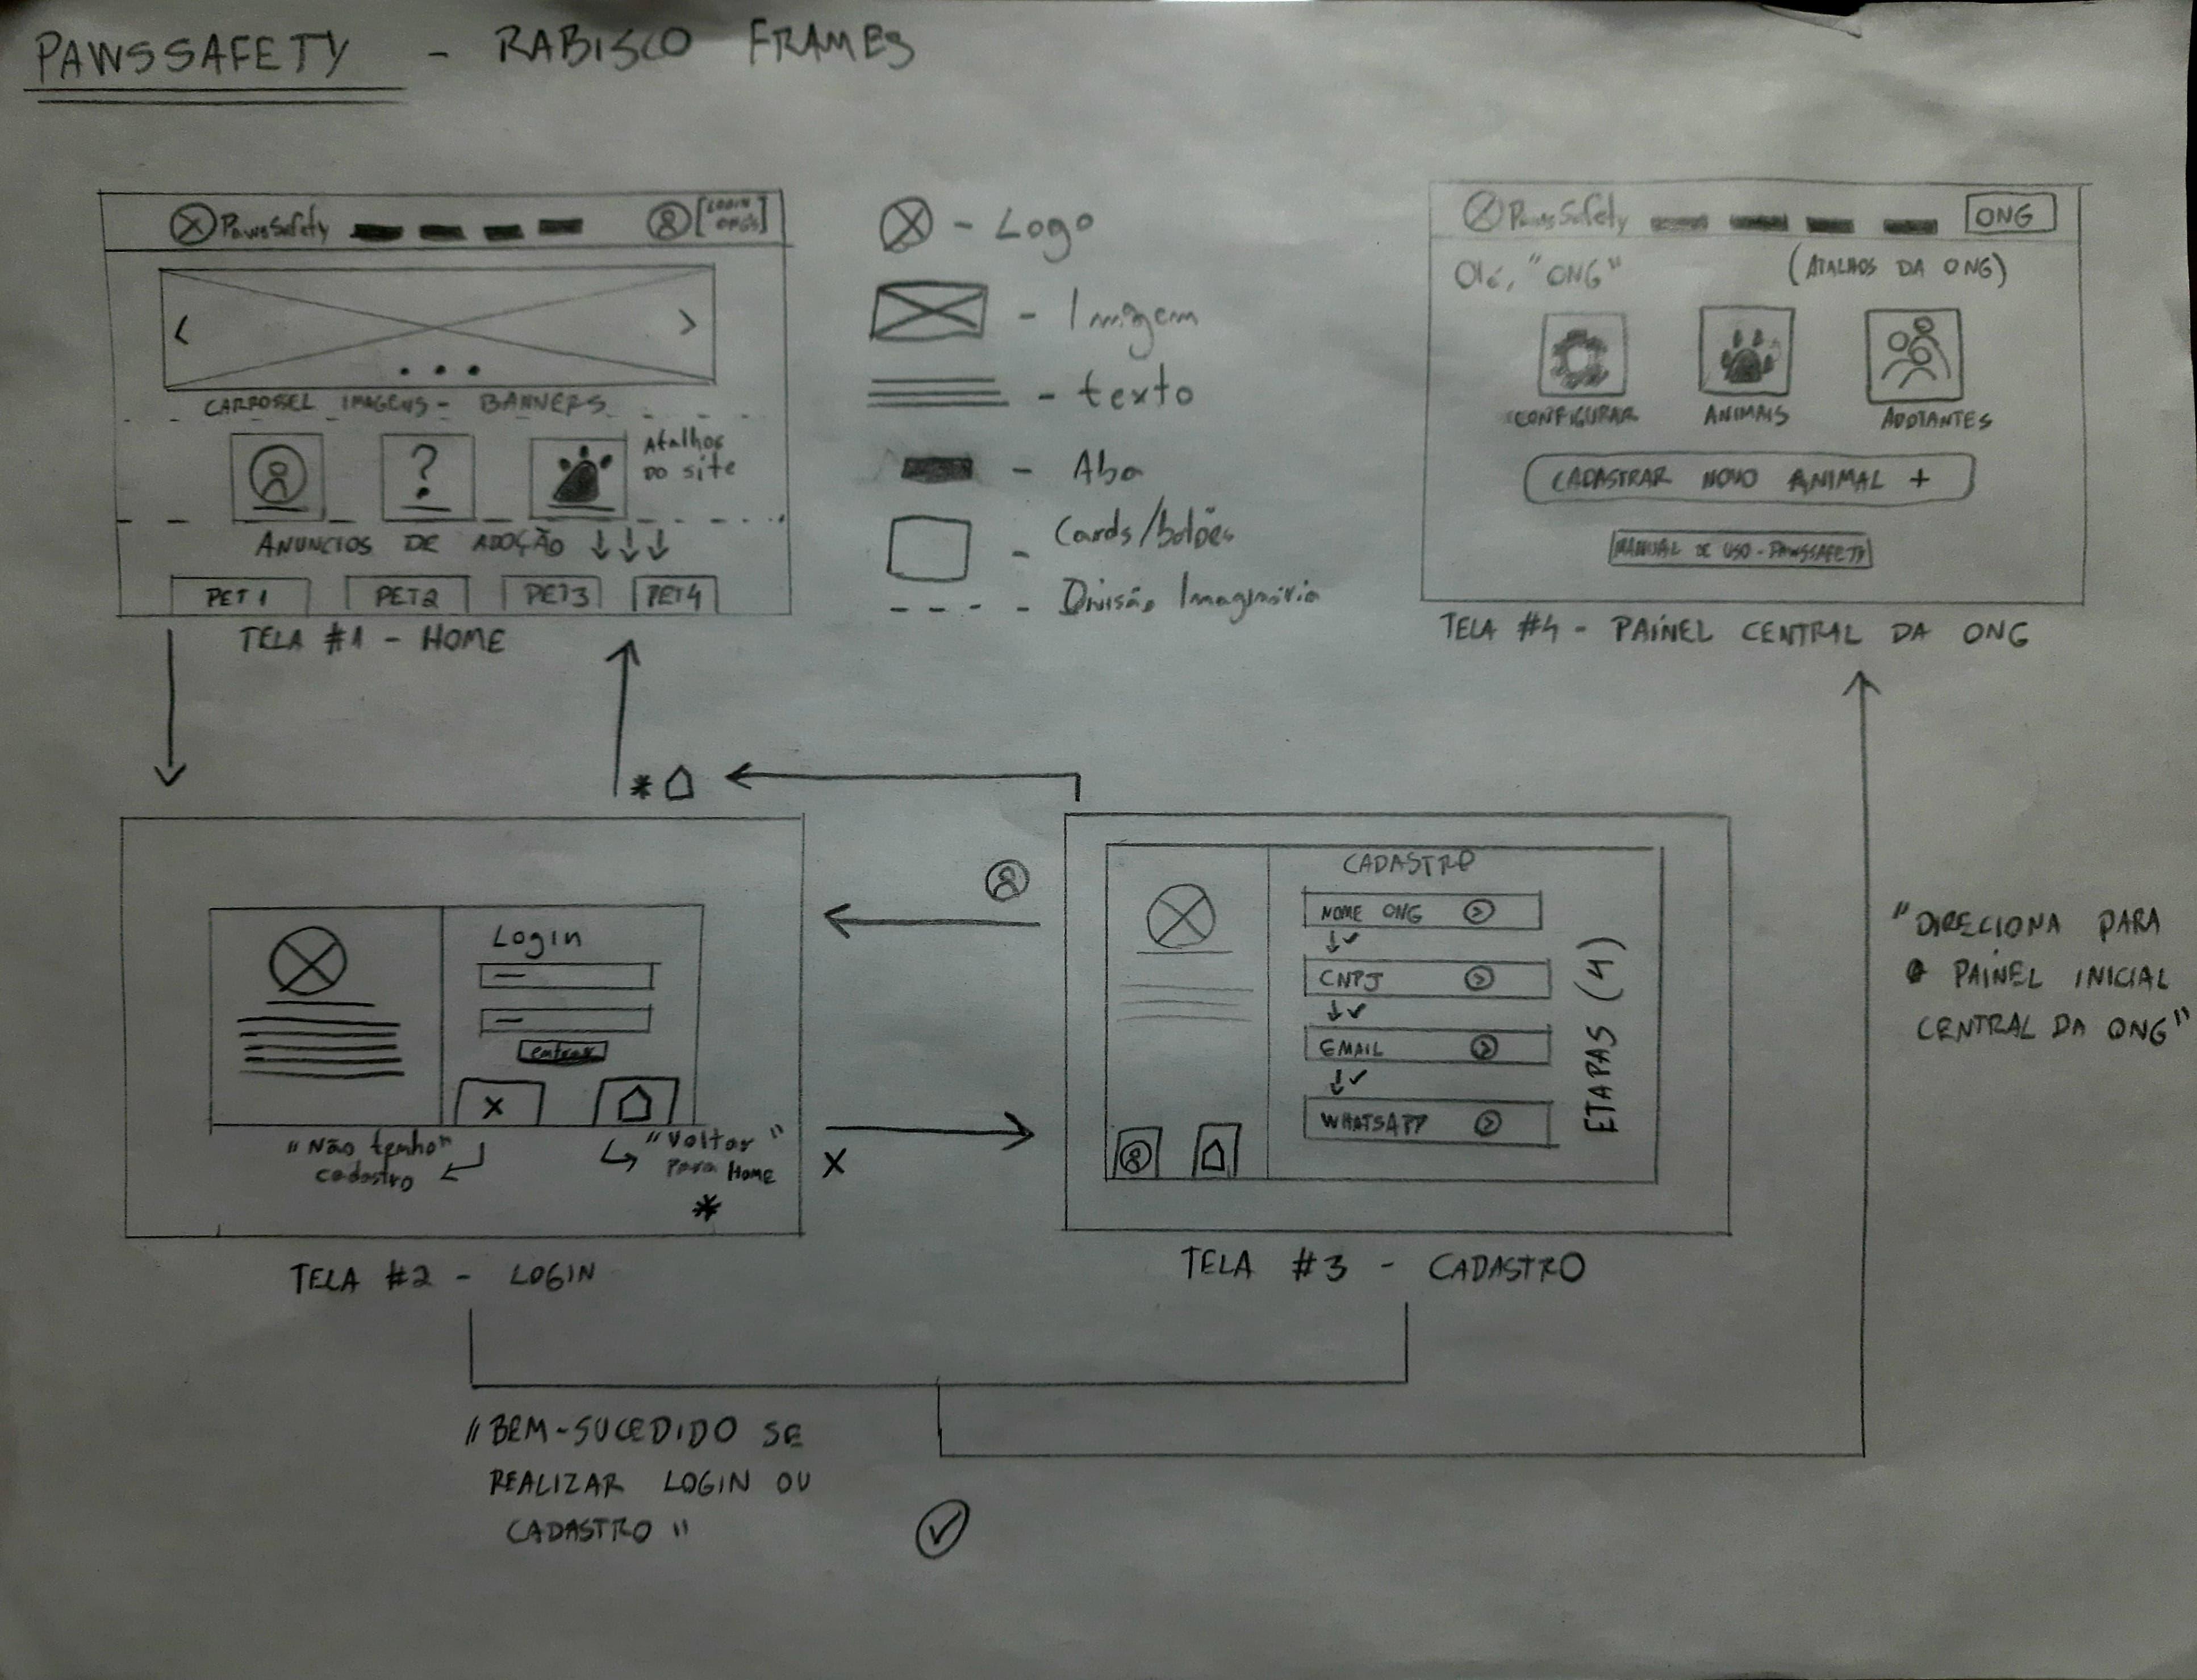 PAWSSAFETY - RABISCO FRAMES
PawsSafety
[LOGIN
ONG'S]
<
>
CARROSSEL IMAGENS - BANNERS
?
Atalhos
DO site
ANUNCIOS DE ADOÇÃO ↓↓↓
PET1 PET2 PET3 PET4
TELA #1 - HOME
- Logo
- Imagem
- texto
- Aba
- Cards/botões
--- - Divisão Imaginária
PawsSafety
ONG
Olá, "ONG"
(ATALHOS DA ONG)
CONFIGURAR ANIMAIS ADOTANTES
CADASTRAR NOVO ANIMAL +
MANUAL DE USO - PAWSSAFETY
TELA #4 - PAINEL CENTRAL DA ONG
*
Login
entrar
X
"Não tenho"
cadastro
"Voltar"
para Home
*
TELA #2 - LOGIN
X
CADASTRO
NOME ONG
CNPJ
EMAIL
WHATSAPP
ETAPAS (4)
TELA #3 - CADASTRO
"DIRECIONA PARA
O PAINEL INICIAL
CENTRAL DA ONG"
"BEM-SUCEDIDO SE
REALIZAR LOGIN OU
CADASTRO"